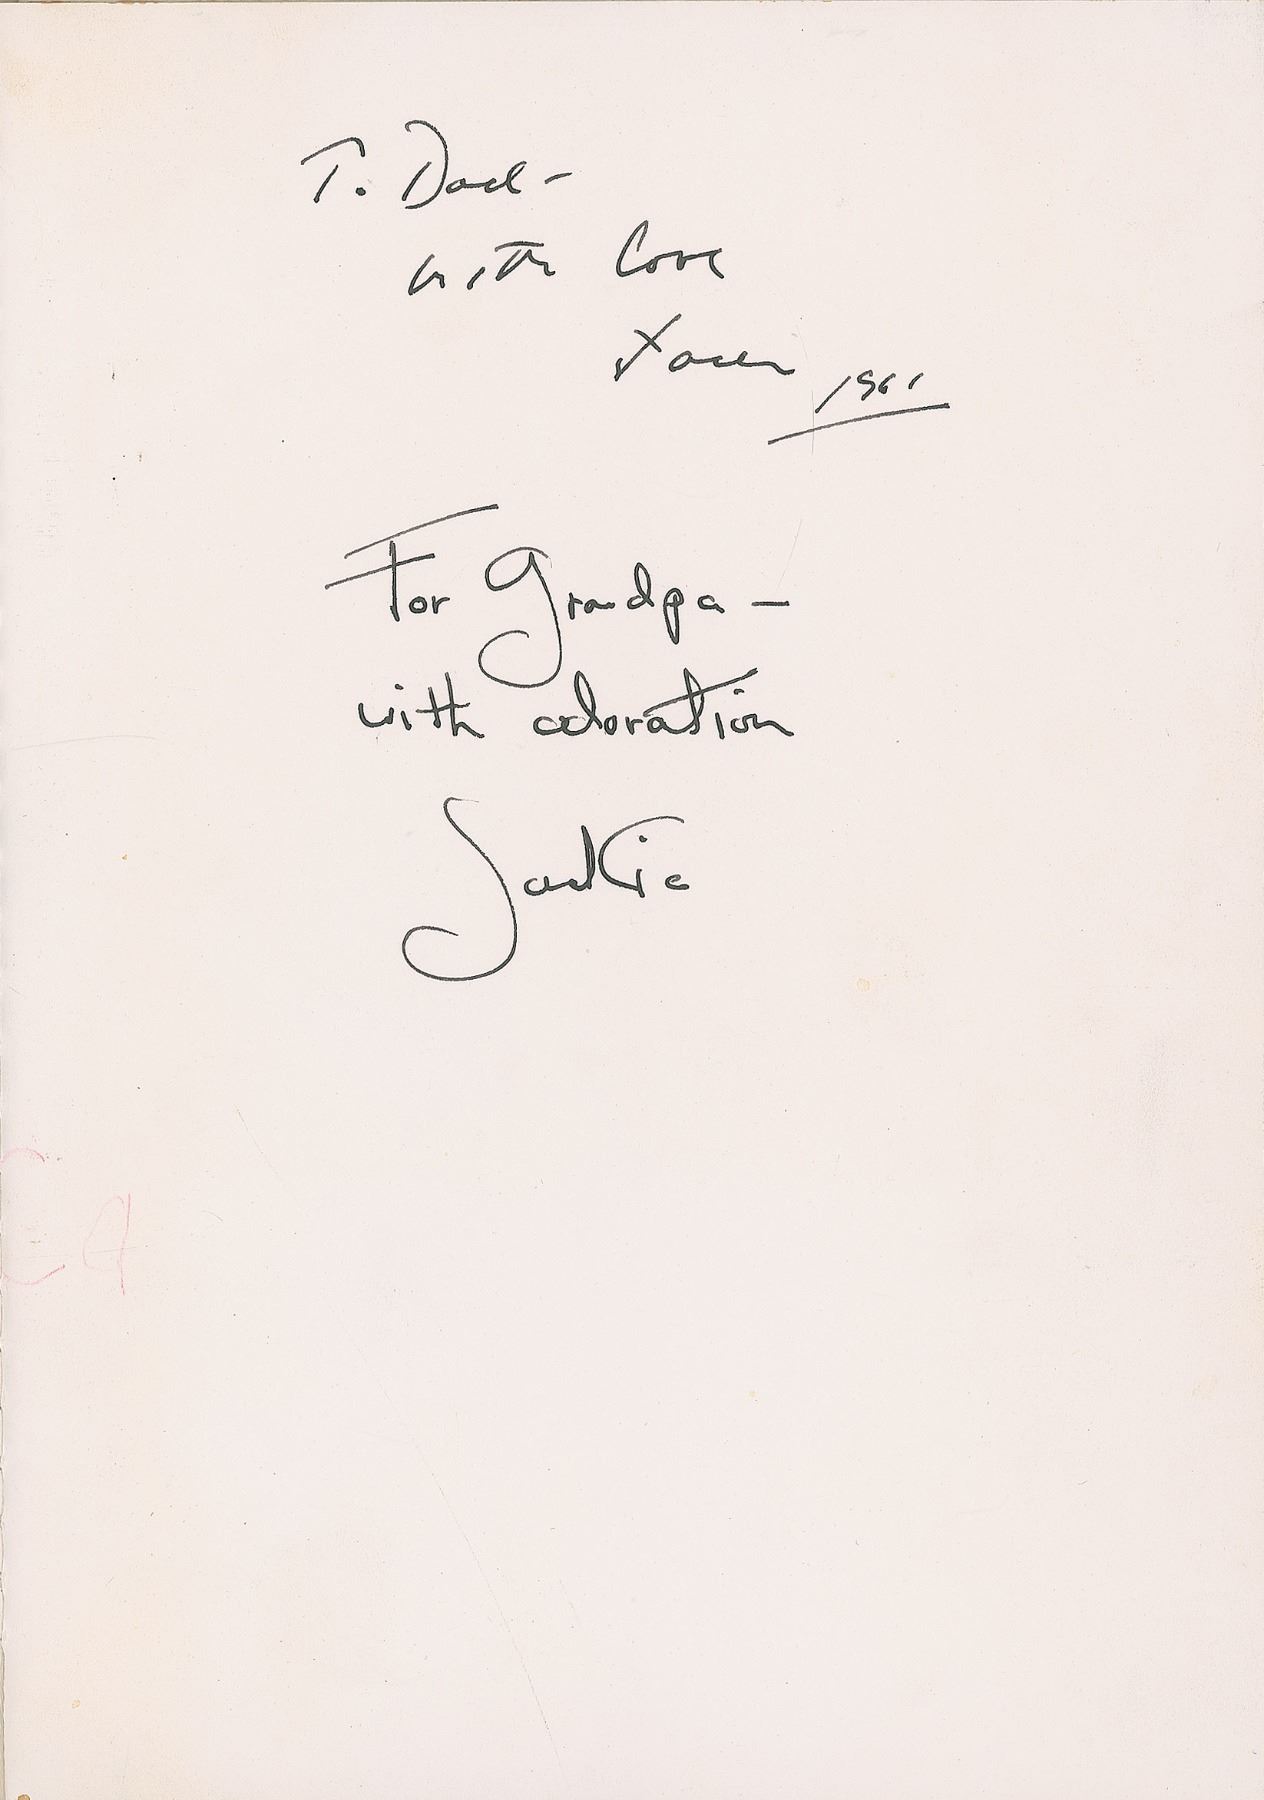 To Dad -
with love
1961
For Grandpa -
with adoration
Jackie